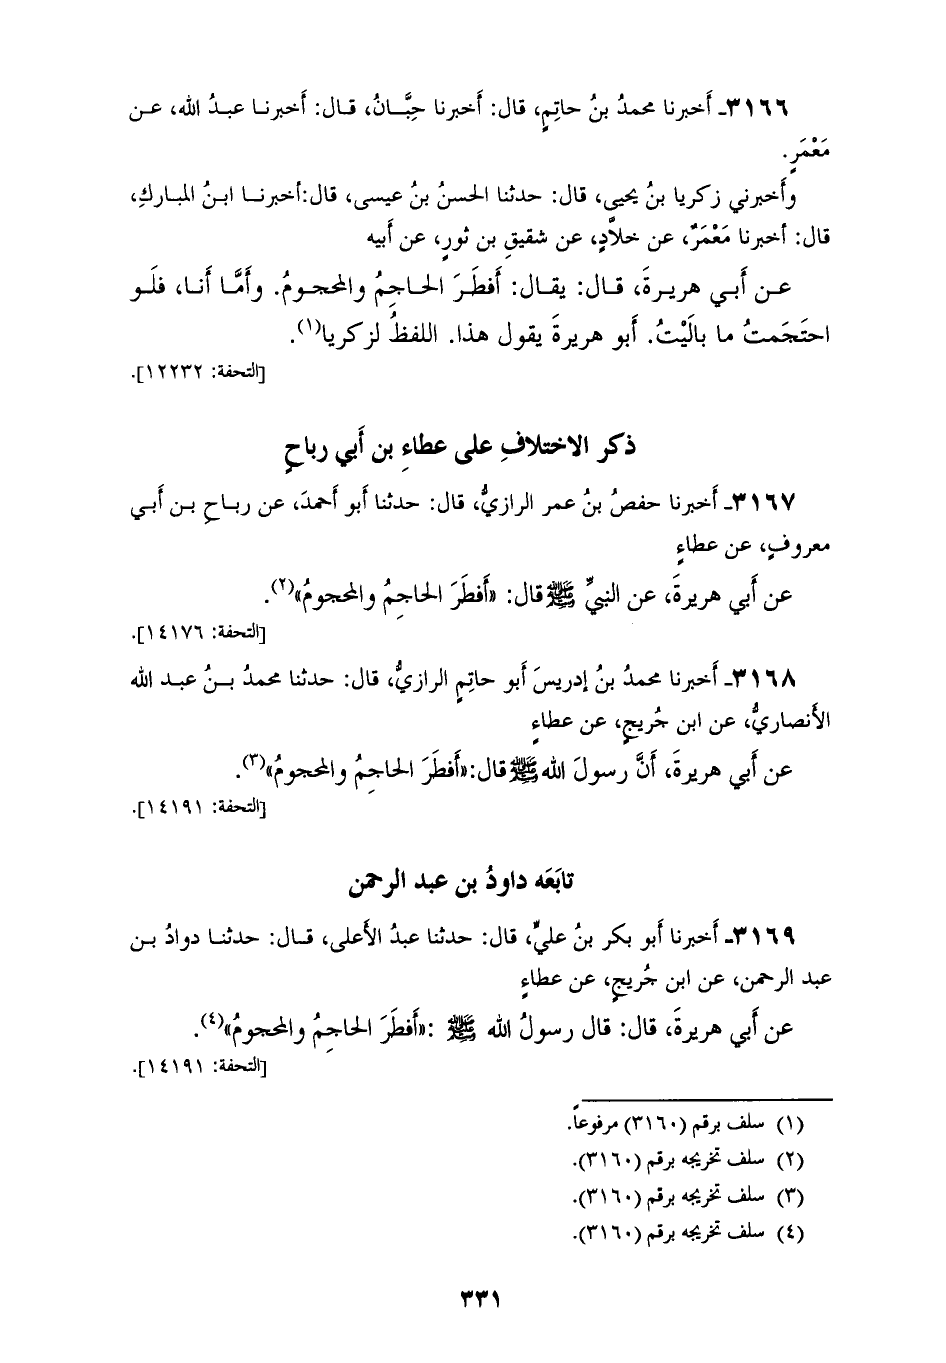 ٣١٦٦ـ أَخبرنا محمدُ بنُ حاتِمٍ، قال: أَخبرنا حِبَّـانُ، قـال: أَخبرنـا عبـدُ الله، عـن
مَعْمَرٍ.
وأَخبرني زكريا بنُ يحيى، قال: حدثنا الحسنُ بنُ عيسى، قال:أخبرنـا ابـنُ المبـاركِ،
قال: أخبرنا مَعْمَرٌ، عن خلاَّدٍ، عن شقيقِ بن ثورٍ، عن أَبيه
عـن أَبـي هريـرةَ، قـال: يقـال: أَفطَـرَ الحـاجِمُ والمحجـومُ. وأَمَّـا أَنـا، فلَـو
احتَجَمتُ ما بالَيْتُ. أَبو هريرةَ يقول هذا. اللفظُ لزكريا(١).
[التحفة: ١٢٢٣٢].
ذكر الاختلافِ على عطاءِ بن أَبي رباحٍ
٣١٦٧ـ أَخبرنا حفصُ بنُ عمر الرازيُّ، قال: حدثنا أَبو أَحمدَ، عن ربـاحِ بـن أَبـي
معروفٍ، عن عطاءٍ
عن أَبي هريرةَ، عن النبيِّ ﷺ قال: «أَفطَرَ الحاجِمُ والمحجومُ»(٢).
[التحفة: ١٤١٧٦].
٣١٦٨ـ أَخبرنا محمدُ بنُ إدريسَ أَبو حاتِمٍ الرازيُّ، قال: حدثنا محمدُ بـنُ عبـد الله
الأَنصاريُّ، عن ابن جُريجٍ، عن عطاءٍ
عن أَبي هريرةَ، أَنَّ رسولَ الله ﷺ قال:«أَفطَرَ الحاجِمُ والمحجومُ»(٣).
[التحفة: ١٤١٩١].
تابَعَه داودُ بن عبد الرحمن
٣١٦٩ـ أَخبرنا أَبو بكر بنُ عليٍّ، قال: حدثنا عبدُ الأَعلى، قـال: حدثنـا دوادُ بـن
عبد الرحمن، عن ابن جُريجٍ، عن عطاءٍ
عن أَبي هريرةَ، قال: قال رسولُ الله ﷺ :«أَفطَرَ الحاجِمُ والمحجومُ»(٤).
[التحفة: ١٤١٩١].
(١) سلف برقم (٣١٦٠) مرفوعاً.
(٢) سلف تخريجه برقم (٣١٦٠).
(٣) سلف تخريجه برقم (٣١٦٠).
(٤) سلف تخريجه برقم (٣١٦٠).
٣٣١